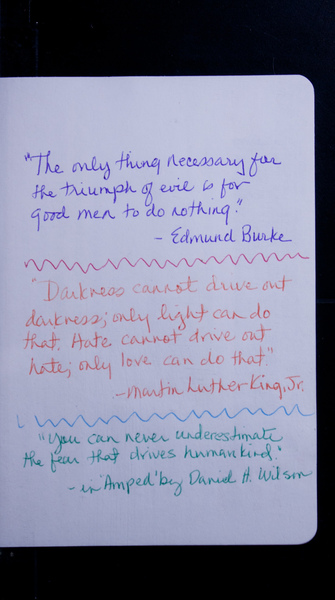 "The only thing necessary for
the triumph of evil is for
good men to do nothing."
- Edmund Burke
"Darkness cannot drive out
darkness; only light can do
that. Hate cannot drive out
hate; only love can do that."
- Martin Luther King, Jr.
"You can never underestimate
the fear that drives humankind."
- in 'Amped' by Daniel H. Wilson